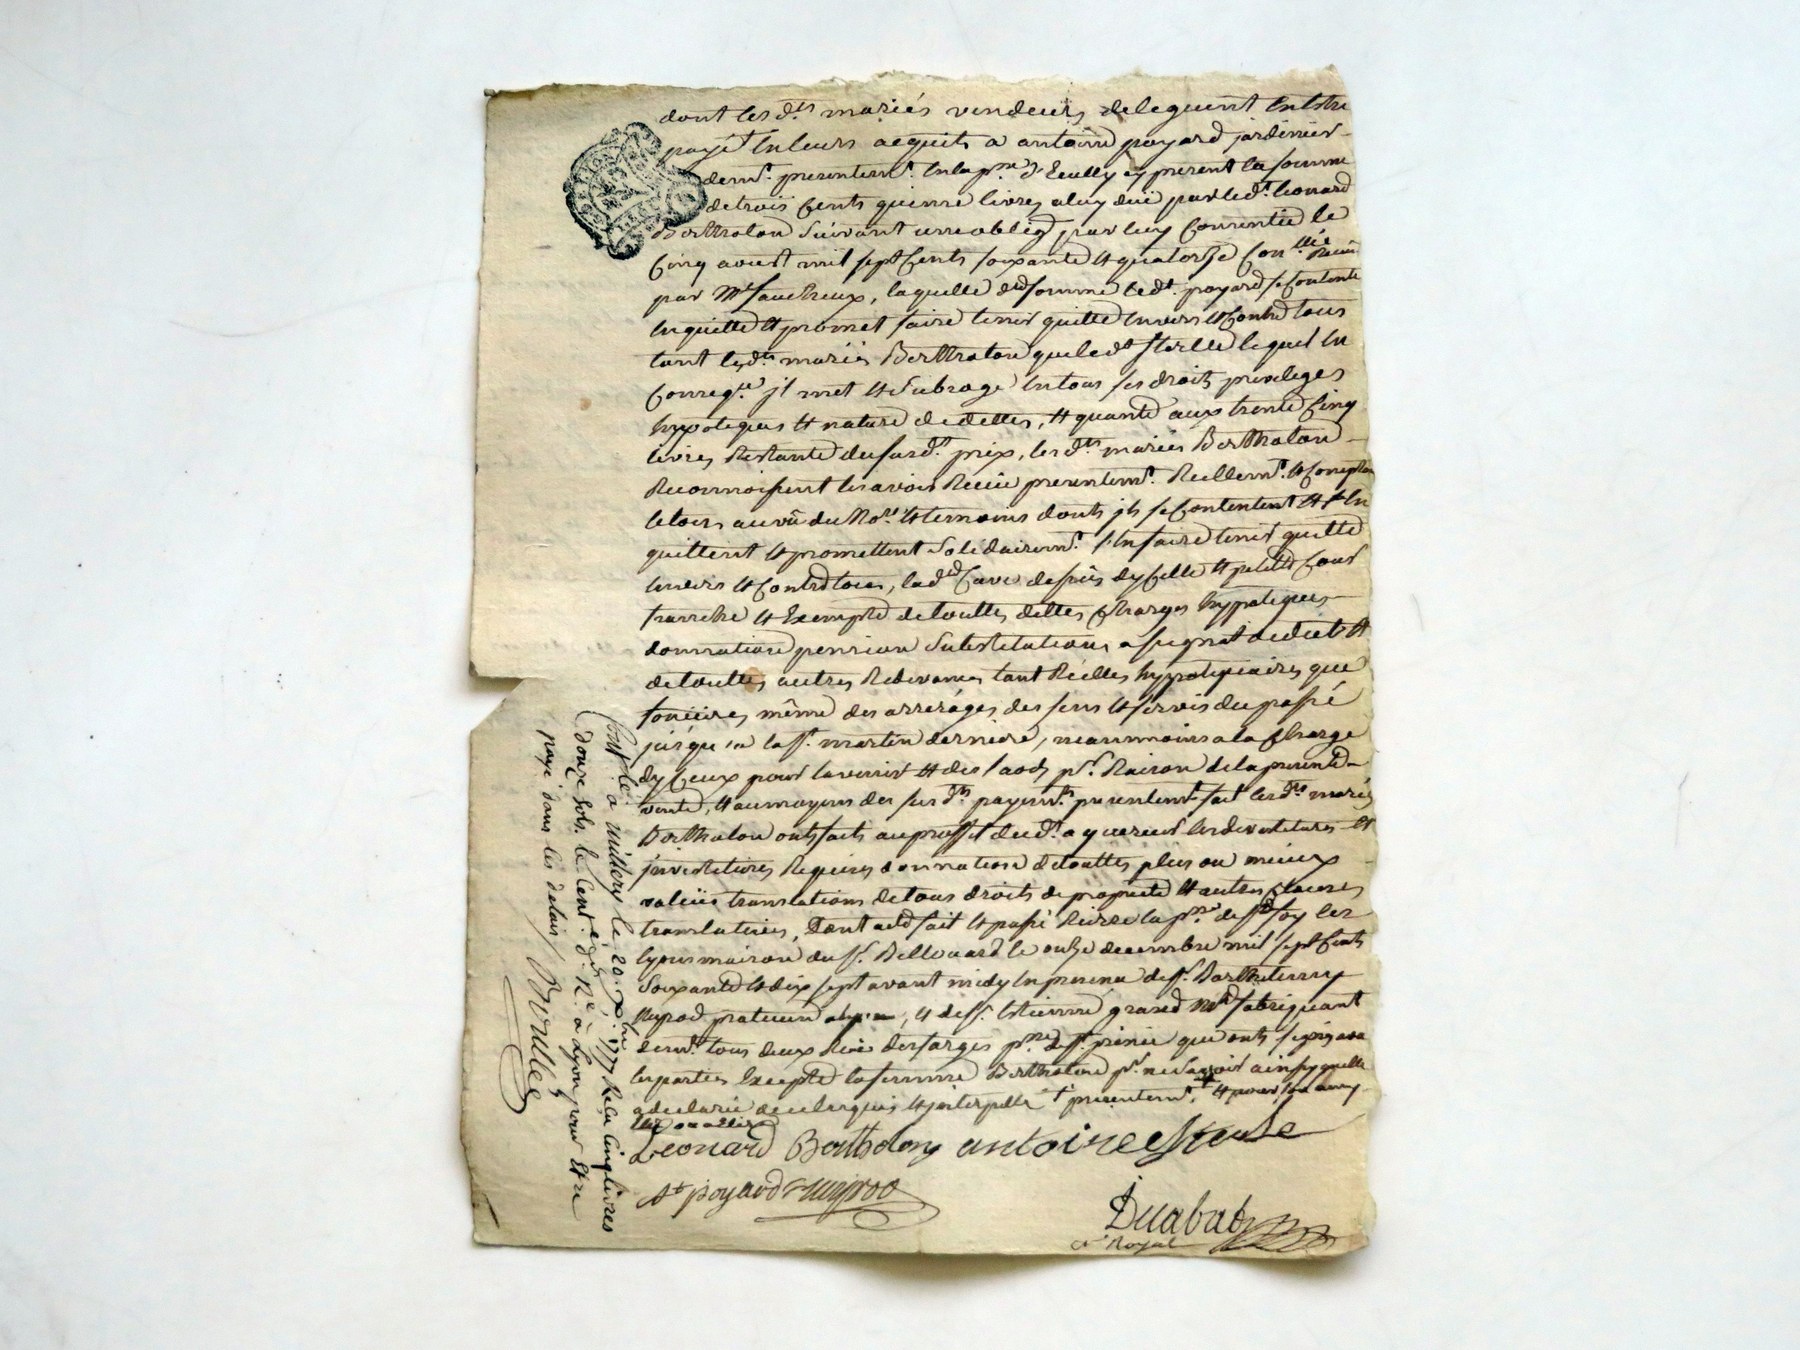 dont les dts mariés vendeurs deleguent En Etre
payé En leurs acquits a antoine poyard jardinier
demt. presentemt. En la psse d'Ecully cy present la somme
de trois Cents quinze livres a luy düe par led. leonard
Bertholon Suivant une oblig par luy Consentie le
Cinq aoust mil sept Cents soixante et quatorze Reçüe
par Me , laquelle de somme led. poyard se Contente
En quitte et promet faire tenir quitte Envers et Contre tous
tant lesdts mariés Bertholon que led. lequel En
Conseqce jl met et Subroge En tous ses droits privileges
hypoteques et nature de dettes, et quand aux trente Cinq
livres Restante dususd. prix, lesdts mariés Bertholon
Reconnoissent les avoir Reçüe presentemt. Reellemt. et Compta
le tous au vü du Nore et temoins dont jls se Contentent et En
quittent et promettent Solidairemt. l'En faire tenir quitte
Envers et Contre tous, lad. Cave dessus dyCelle et petitte Cour
franche et Exempte de touttes dettes Charges hypoteques
donnation pension Substitutions et
de touttes autres Redevances tant Réelles hypotequaires que
foncüres même des arrérages des sens et servis du passé
jusque a la st. martin derniere, neanmoins a la Charge
dyCeux pour lavenir et des laods pr. Raison de la presente
vente, et au moyens des susdts payemts presentemt. fait lesdts mariés
Berthalon ont faits au proffit dud. aquereur les devestitures et
jnvestitures Requises donnation de touttes plus ou mieux
valües translations de tous droits de proprieté et autres Clauses
translatives, Dont acte fait et passé Riere la psse de ste foy les
lyon maison du sr. Bellouard le onze decembre mil sept Cents
Soixante et dix sept avant midy En presence de sr. Barthelemy
Neyrod praticien , et de sr. Etienne grand Md fabriquant
demt. tous deux st. jrenée que ont signé avec
les parties Excepté la femme Berthalon pr. ne Savoir ainsy quelle
a declaré de ce Enquis et jnterpellé presentemt. et pour
Leonard Berthelon antoine
At poyard Neyrod
Duabat
Nre Royal
Contrlé. a millery le 20. Xbre 1777 Reçu Cinq livres
douze sols. le Cent. e d. Ré. a Lyon pour Etre
payé dans les delais